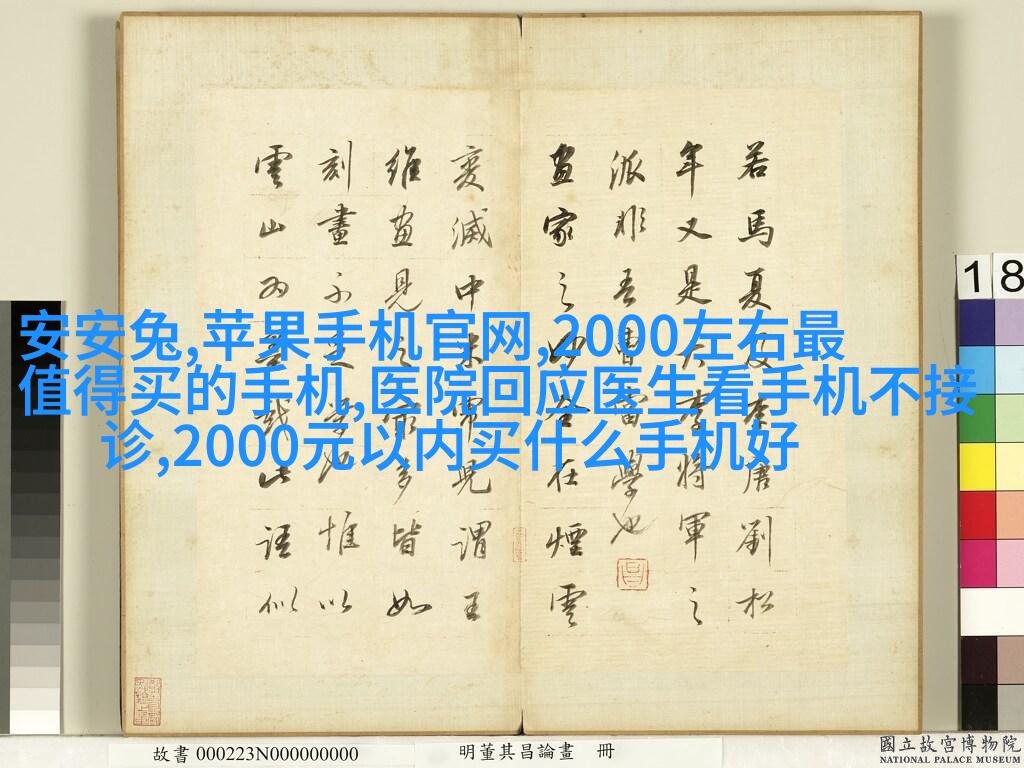 安安兔,苹果手机官网,2000左右最
值得买的手机,医院回应医生看手机不接
诊,2000元以内买什么手机好
若馬夏及李唐劉松
年又是大李將軍之
派非吾曹當學也
畫家之妙全在煙雲
變滅中米虎兒謂王
維畫見之最多皆如
刻畫不足學也惟以
雲山為墨戲此語似
18
故書 000223N000000000
明董其昌論畫 冊
國立故宮博物院
NATIONAL PALACE MUSEUM